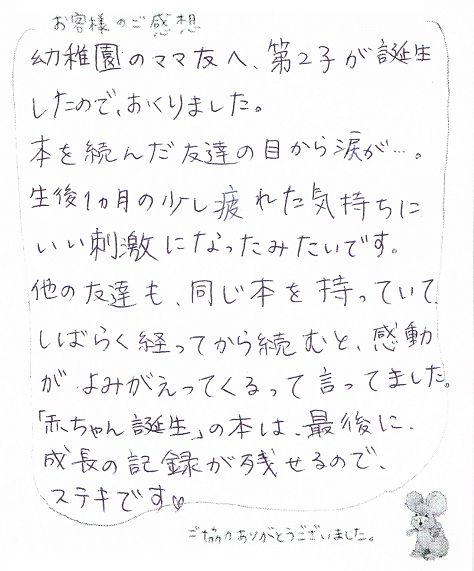 お客様のご感想
幼稚園のママ友へ、第2子が誕生
したので、おくりました。
本を続んだ友達の目から涙が…。
生後1ヵ月の少し疲れた気持ちに
いい刺激になったみたいです。
他の友達も、同じ本を持っていて、
しばらく経ってから続むと、感動
がよみがえってくるって言ってました。
「赤ちゃん誕生」の本は、最後に、
成長の記録が残せるので、
ステキです♡
ご協力ありがとうございました。